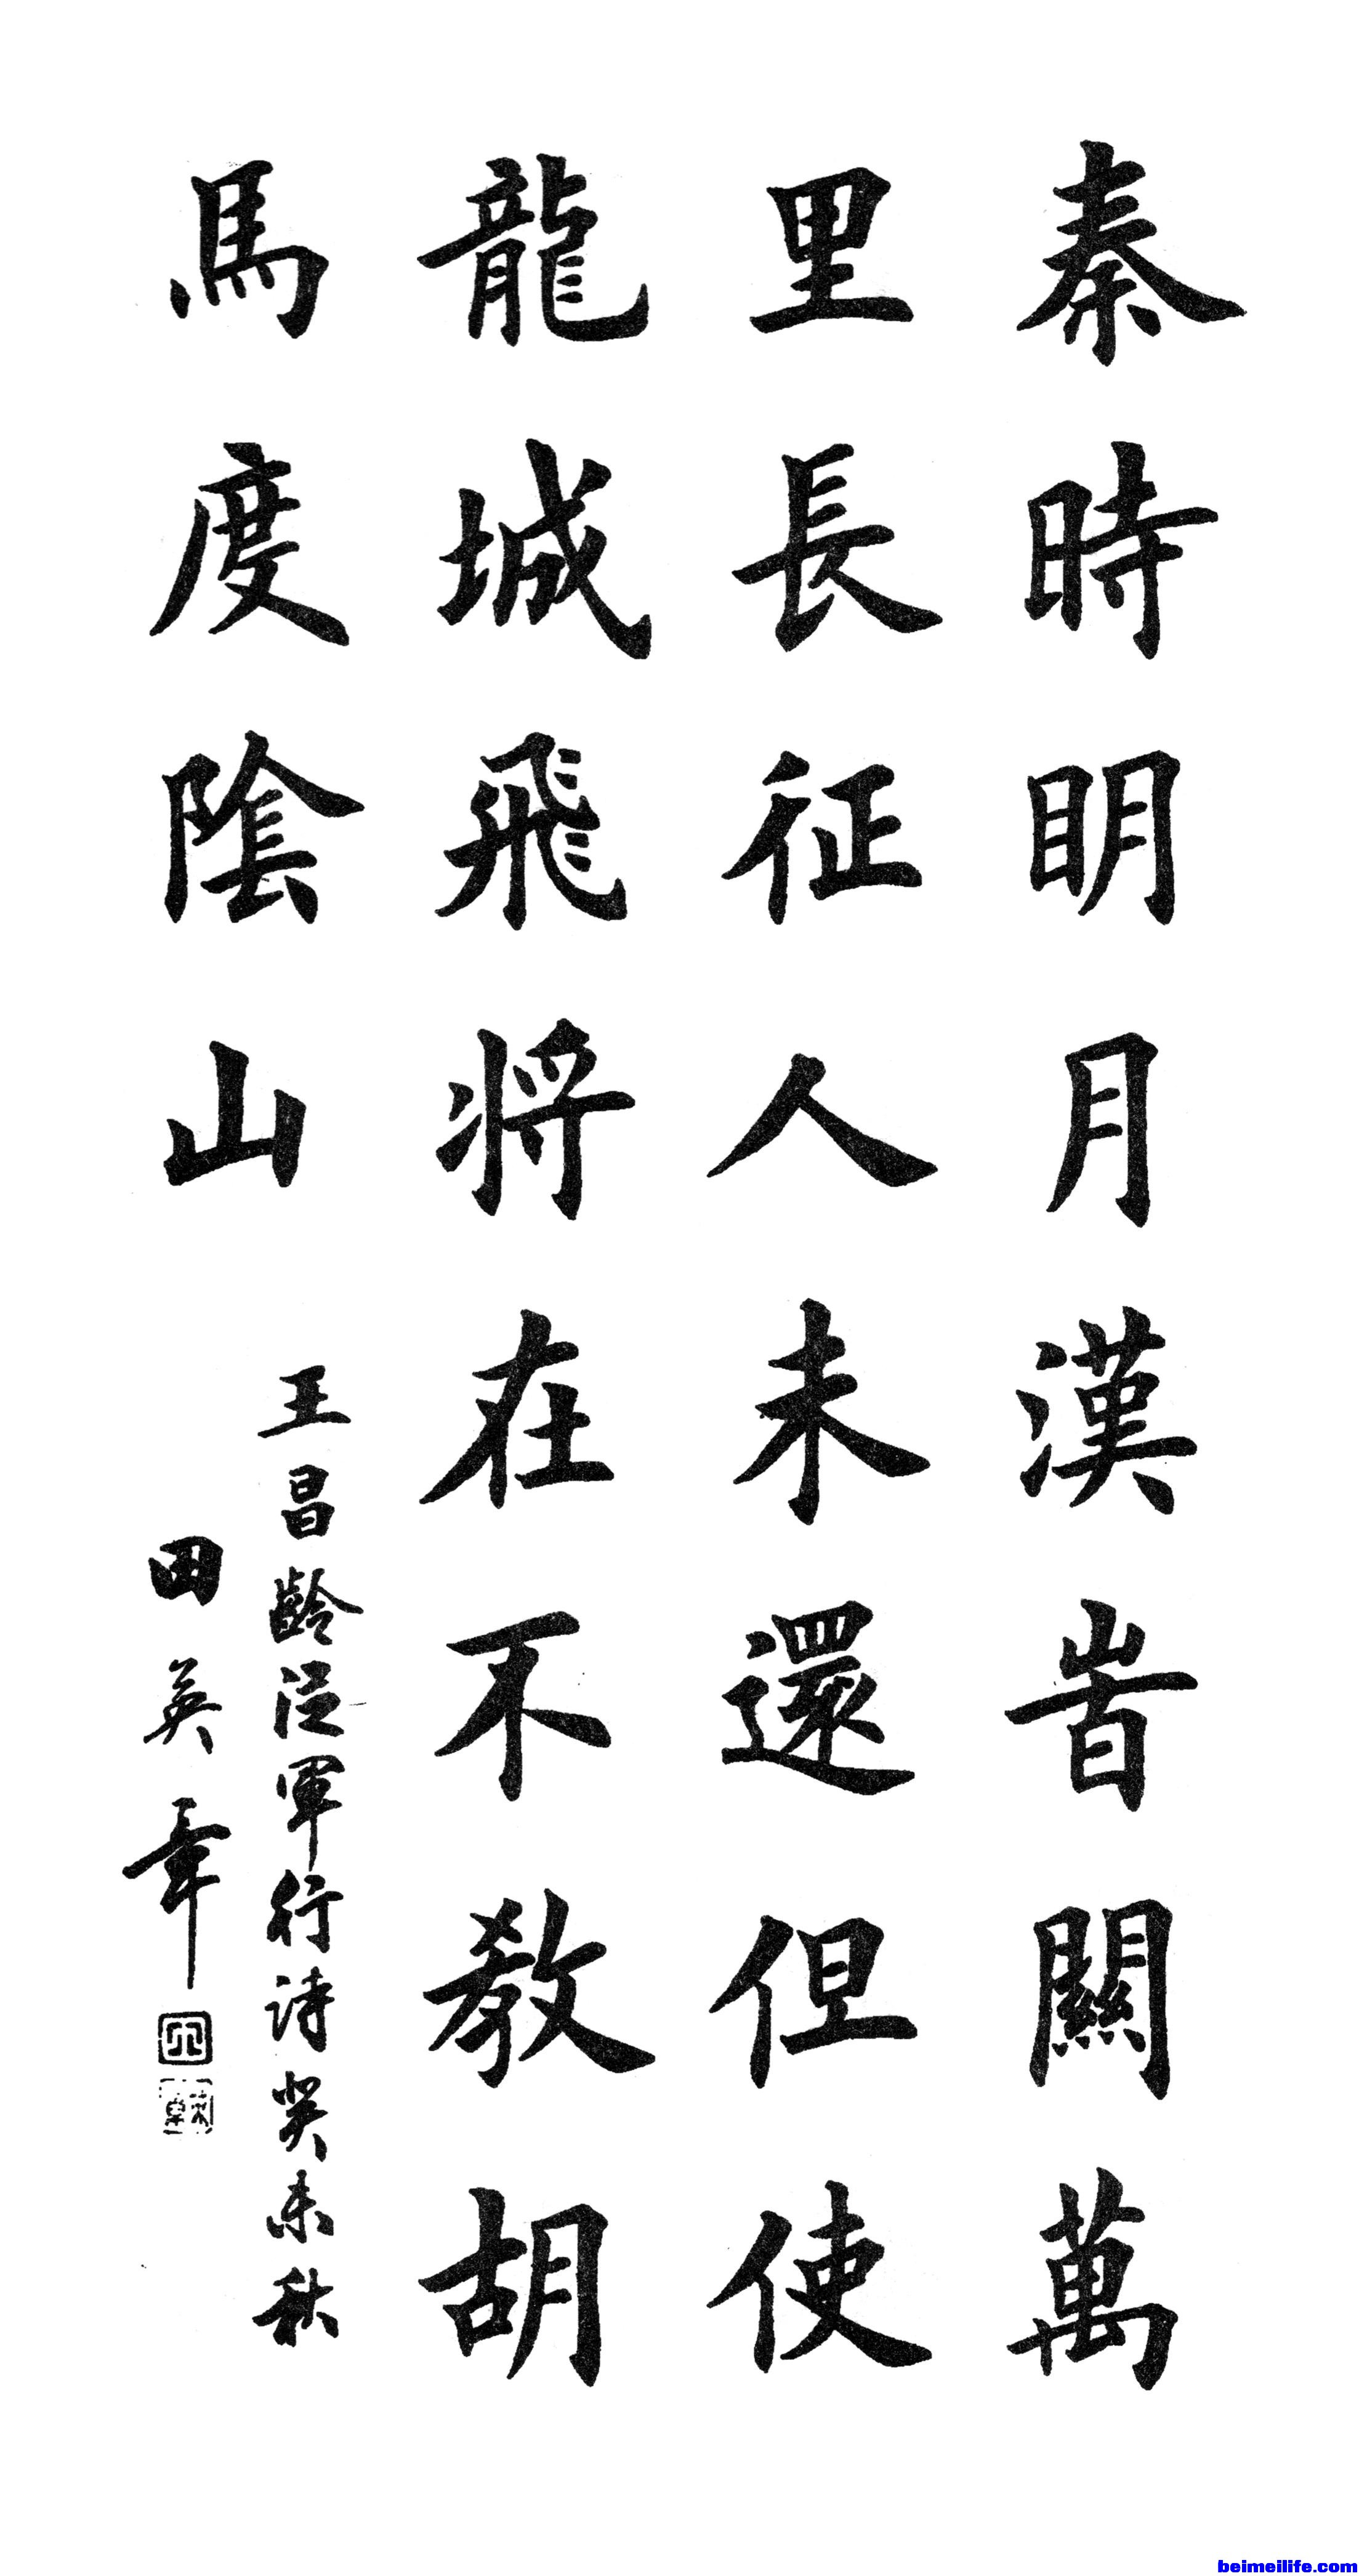 秦時明月漢旹關萬
里長征人未還但使
龍城飛将在不教胡
馬度陰山
王昌齡從軍行詩癸未秋
田英章
beimeilife.com